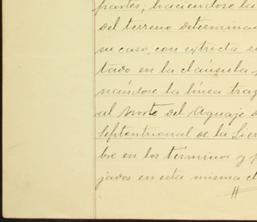 partes, haciendose la
del terreno determina
su caso, con extricta su
tado en la cláusula
niéndose la línea traz
al Norte del Aguaje d
Septentrional de la Sier
bre en los terminos y
jados en esta misma cl